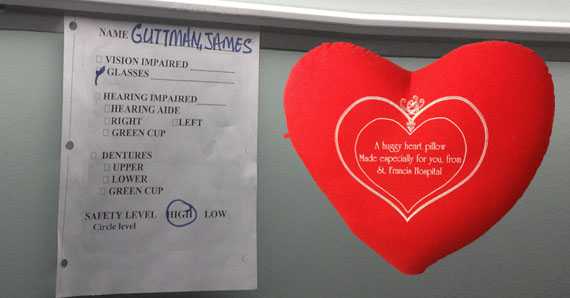 NAME GUTTMAN, JAMES
VISION IMPAIRED
GLASSES
HEARING IMPAIRED
HEARING AIDE
RIGHT LEFT
GREEN CUP
DENTURES
UPPER
LOWER
GREEN CUP
SAFETY LEVEL HIGH LOW
Circle level
A huggy heart pillow
Made especially for you, from
St. Francis Hospital